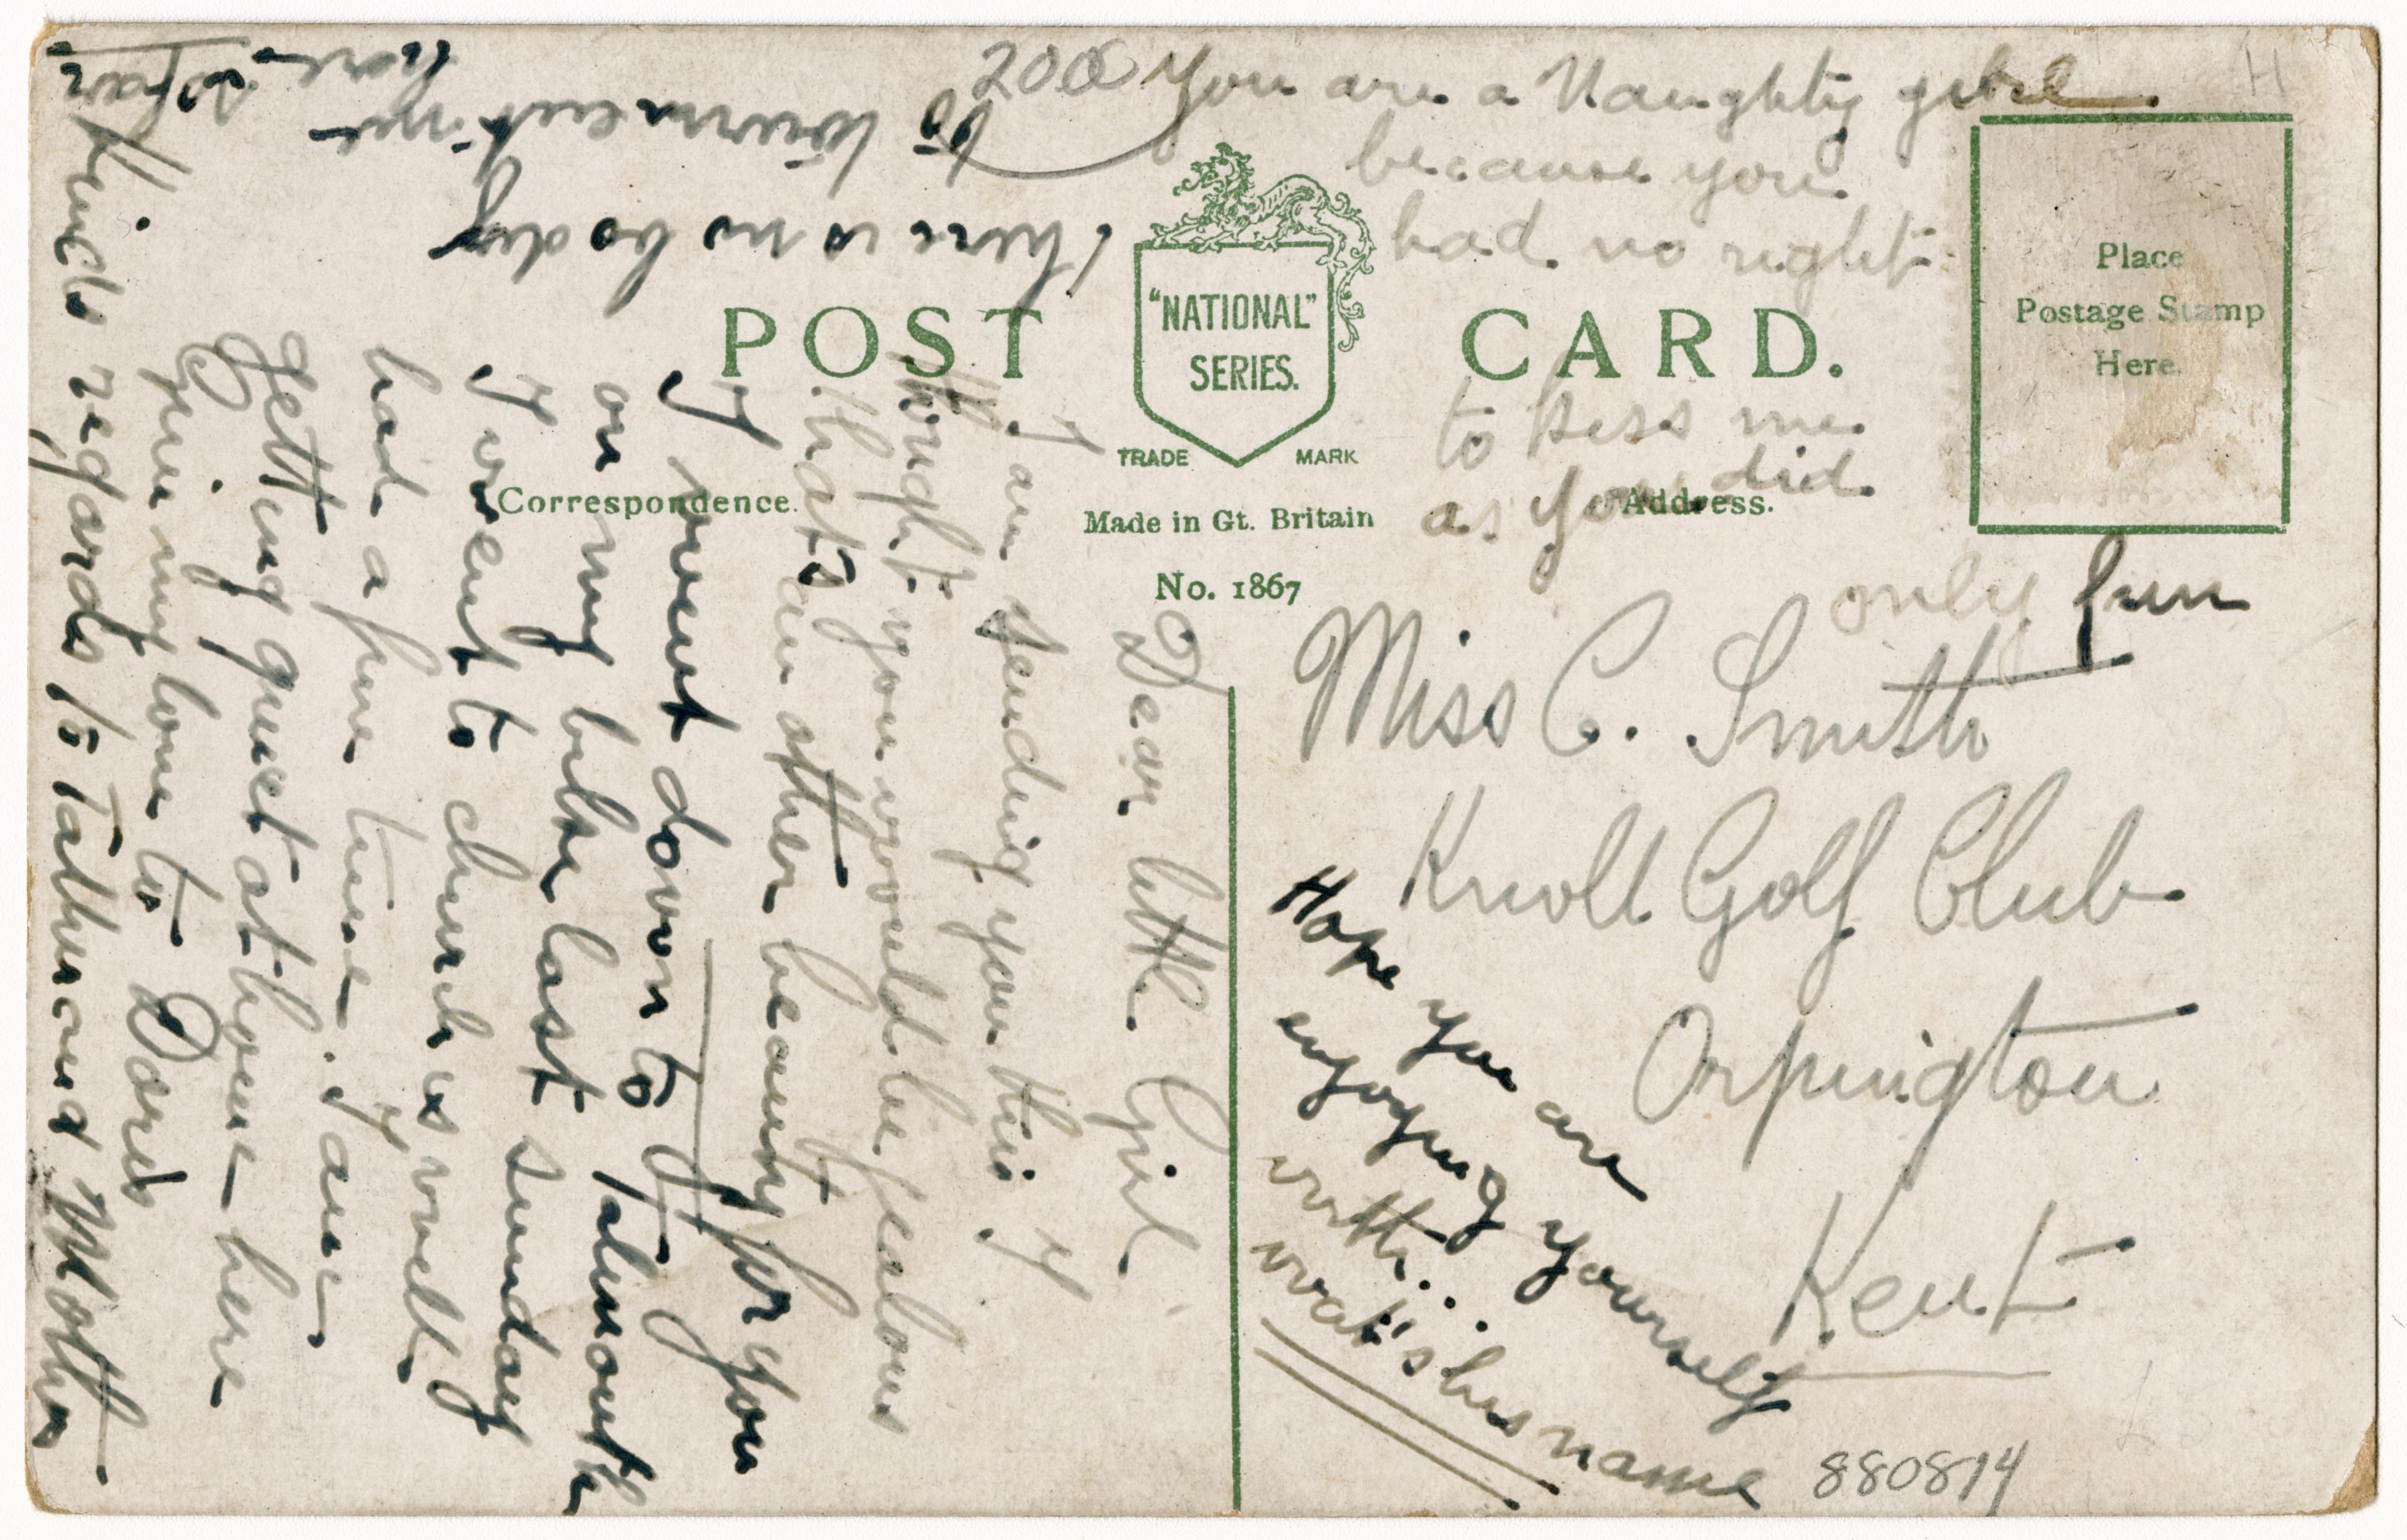 200
You are a Naughty girl
because you
had no right
to kiss me
as you did
only fun
POST CARD.
"NATIONAL"
SERIES.
TRADE MARK
Made in Gt. Britain
No. 1867
Correspondence.
Address.
Place
Postage Stamp
Here.
Dear little Girl.
I am sending you this. I
thought you would be jealous
that's an other beauty for you
I went down to Falmouth
on my bike last sunday
I went to church as well I
had a fine time. I am
getting quiet at home here
Give my love to Doris
kinds regards to Father and Mother
There is no body
to tourment me
here so far
Miss C. Smith
Knoll Golf Club.
Orpington
Kent
Hope you are
enjoying yourself
with...
wat's his name
880814
H